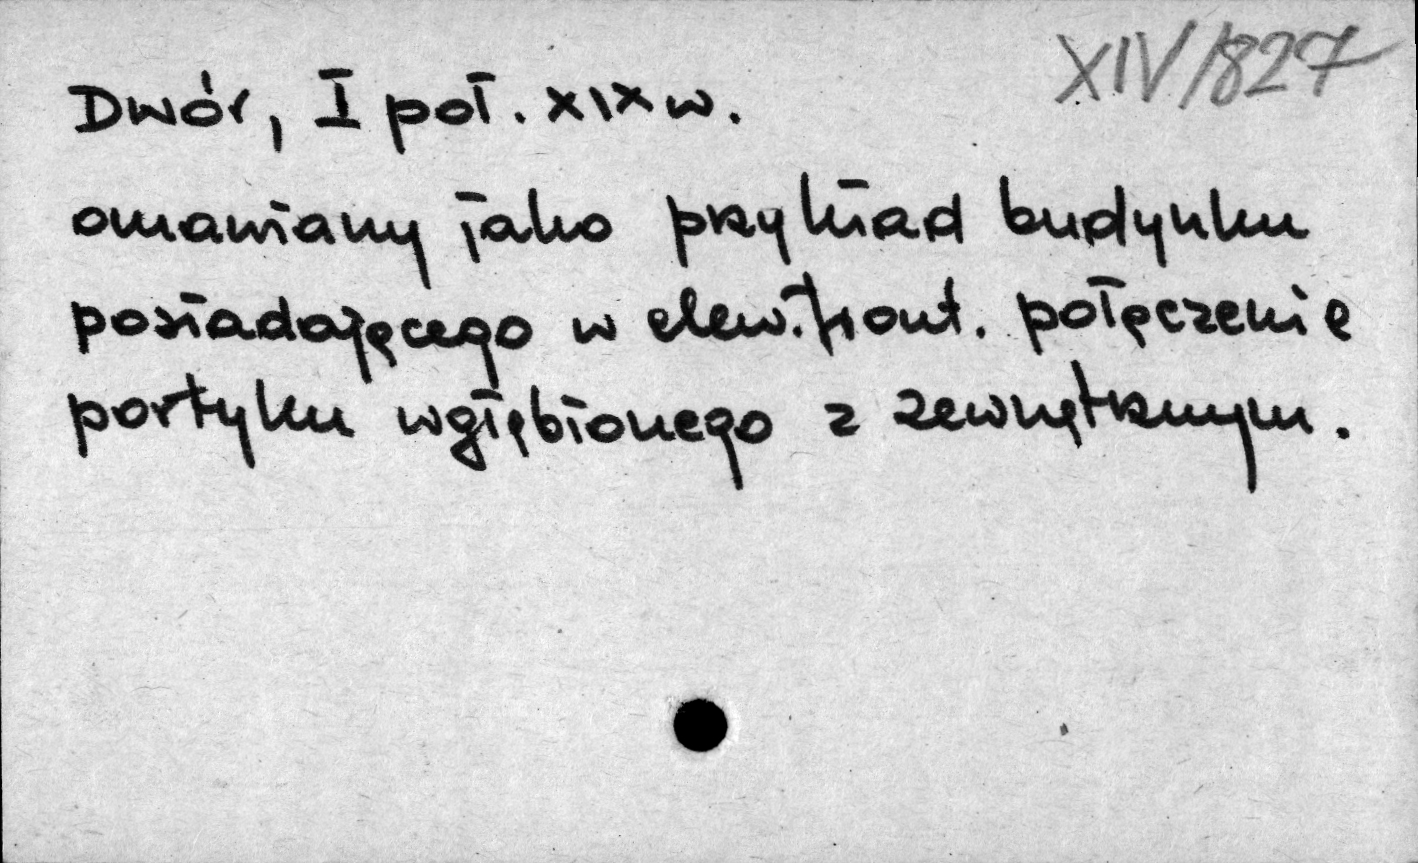 XIV/827
Dwór, I poł. XIX w.
omawiany jako przykład budynku
posiadającego w elew. front. połączenie
portyku wgłębionego z zewnętrznym.